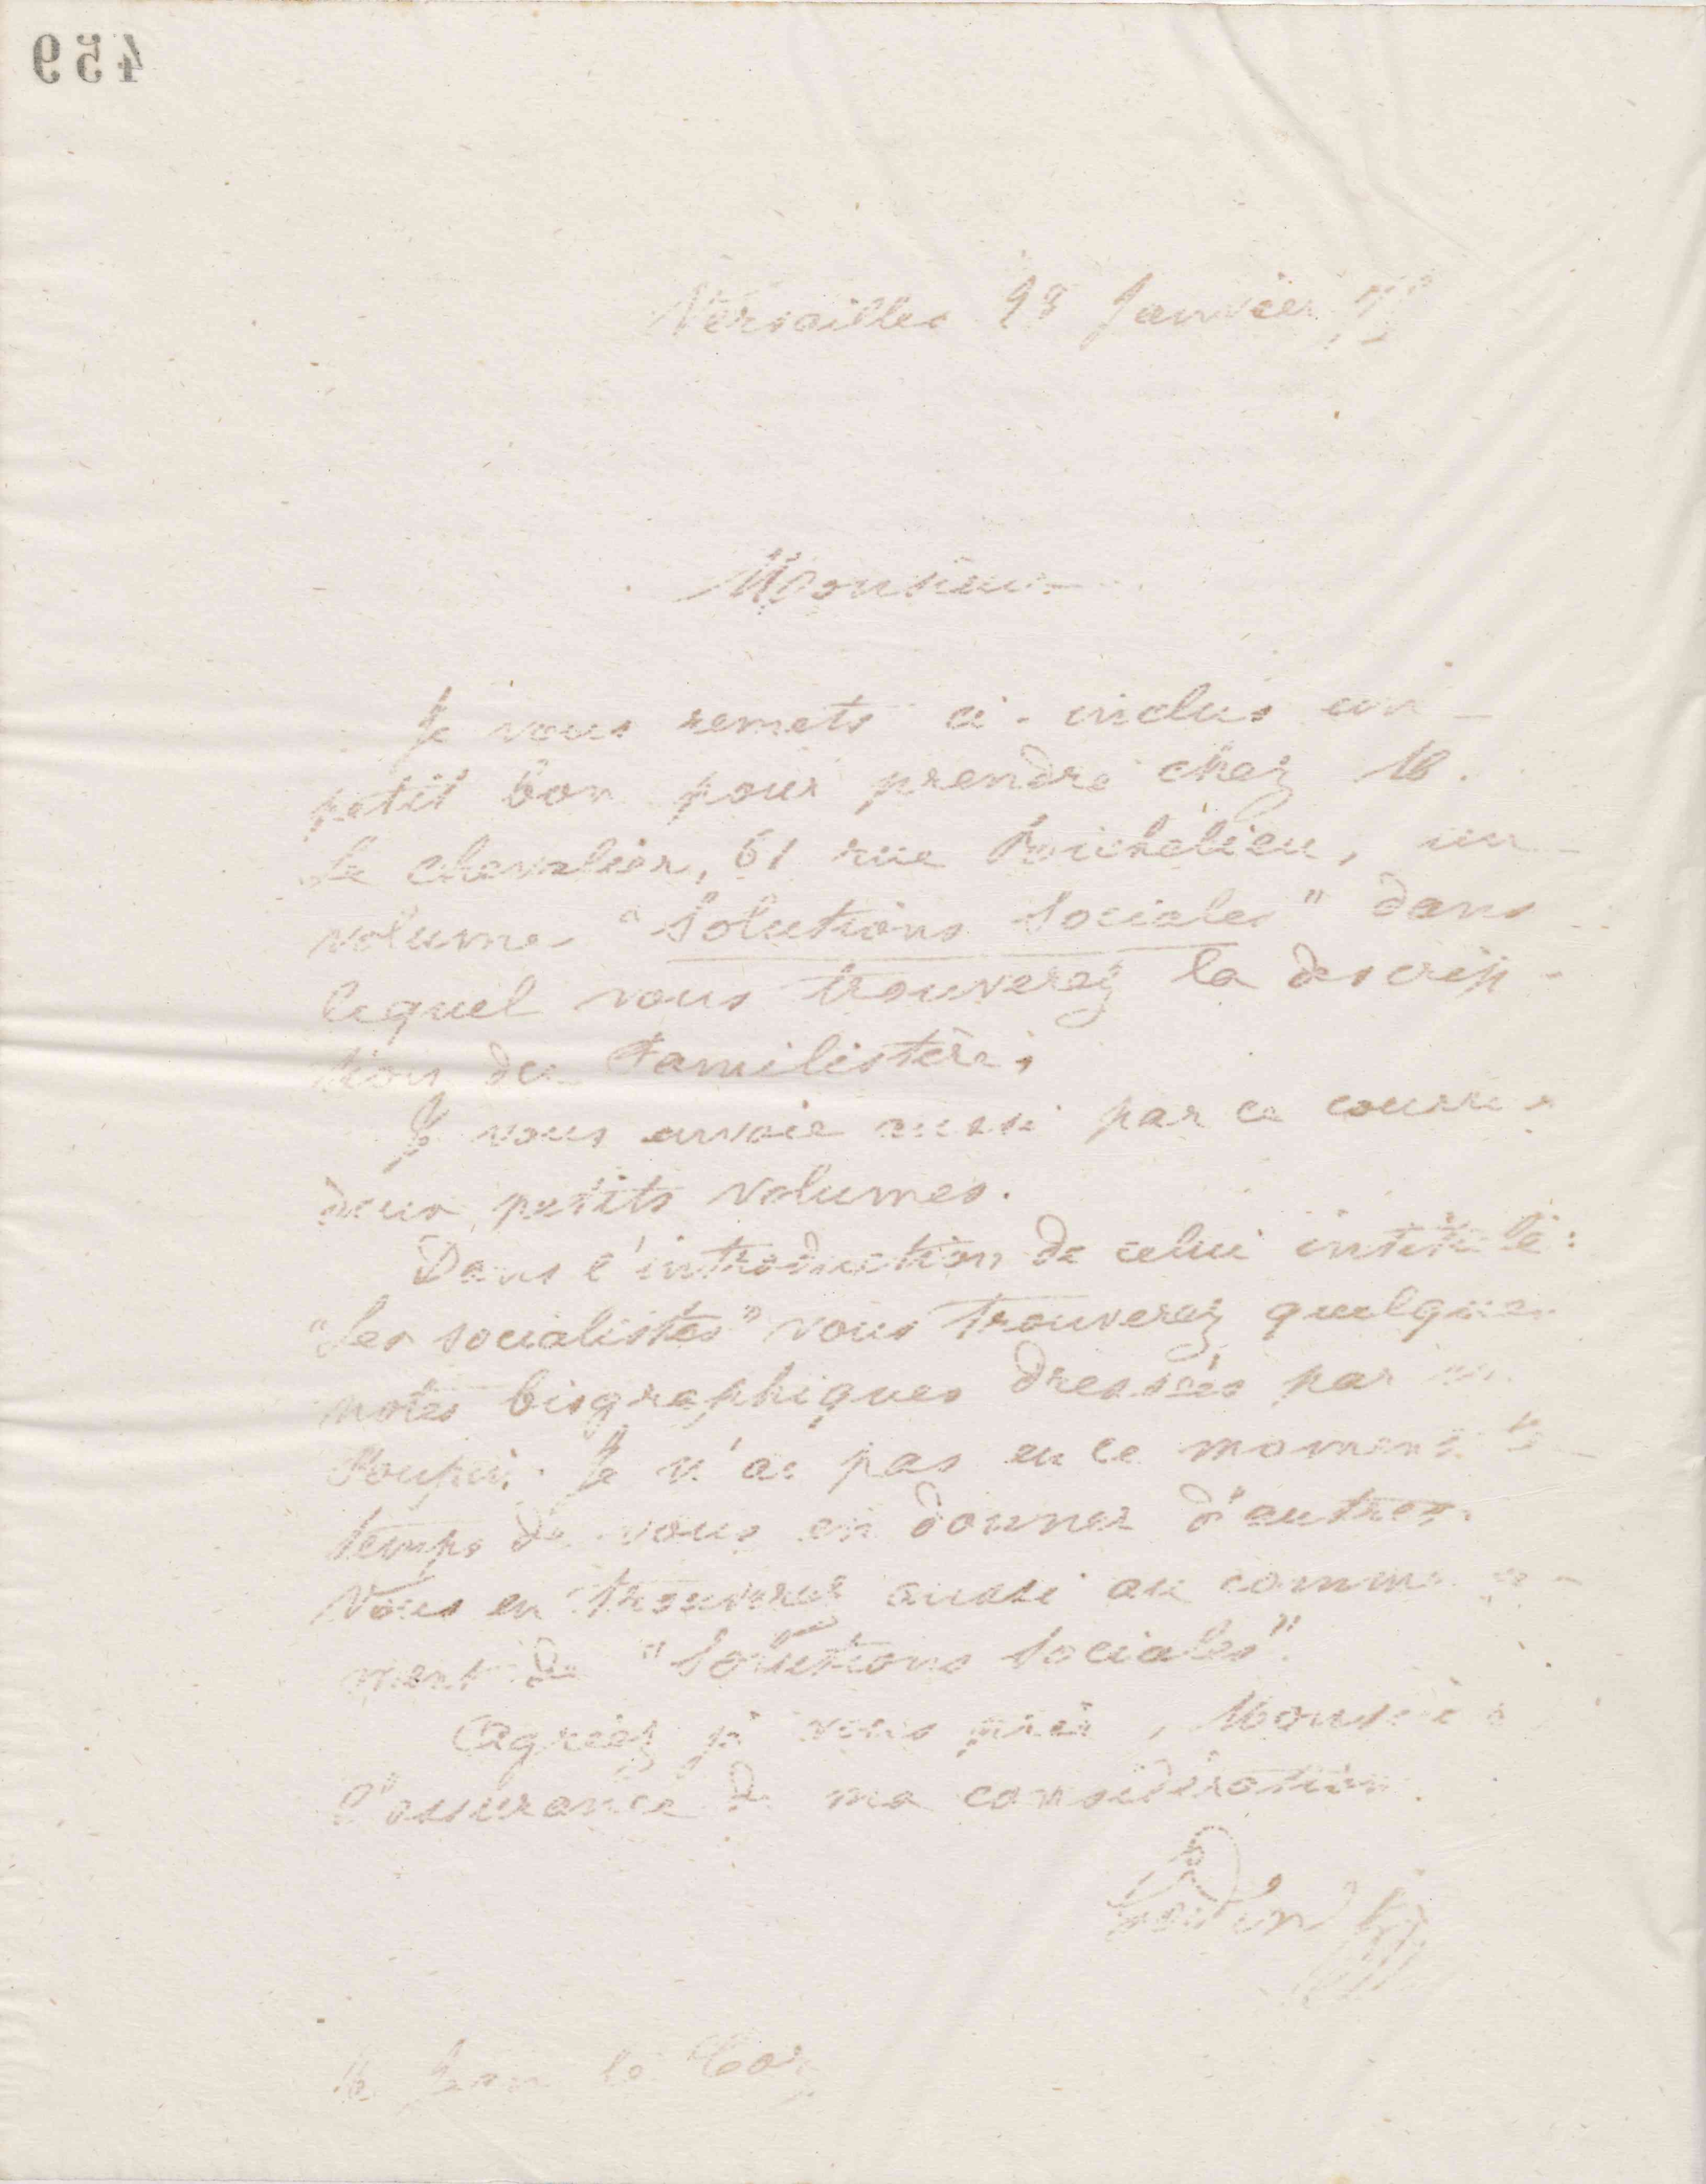 459
Versailles 28 Janvier
Monsieur
Je vous remets ci-inclus un
petit bon pour prendre chez M.
Le chevalier, 61 rue Richelieu, un
volume "Solutions Sociales" dans
lequel vous trouverez la descrip-
tion du Familistère.
Je vous envoie aussi par ce courrier
deux petits volumes.
Dans l'introduction de celui intitulé :
"Les socialistes" vous trouverez quelques
notes biographiques dressées par
Je n'ai pas en ce moment le
temps de vous en donner d'autres.
Vous en trouverez aussi au commence-
ment de "Solutions Sociales".
Agréez je vous prie, Monsieur
l'assurance de ma considération.
Godin
M